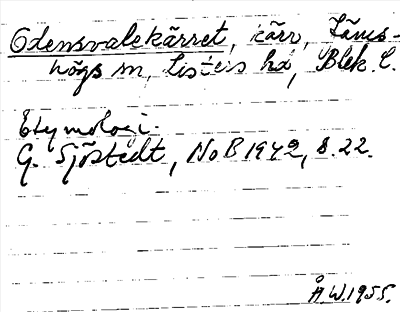 Odensvalekärret, kärr, Jäms-
högs sn, Listers hd, Blek. l.
Etymologi.
G. Sjöstedt, NoB 1942, s. 22.
Å.W. 1955.